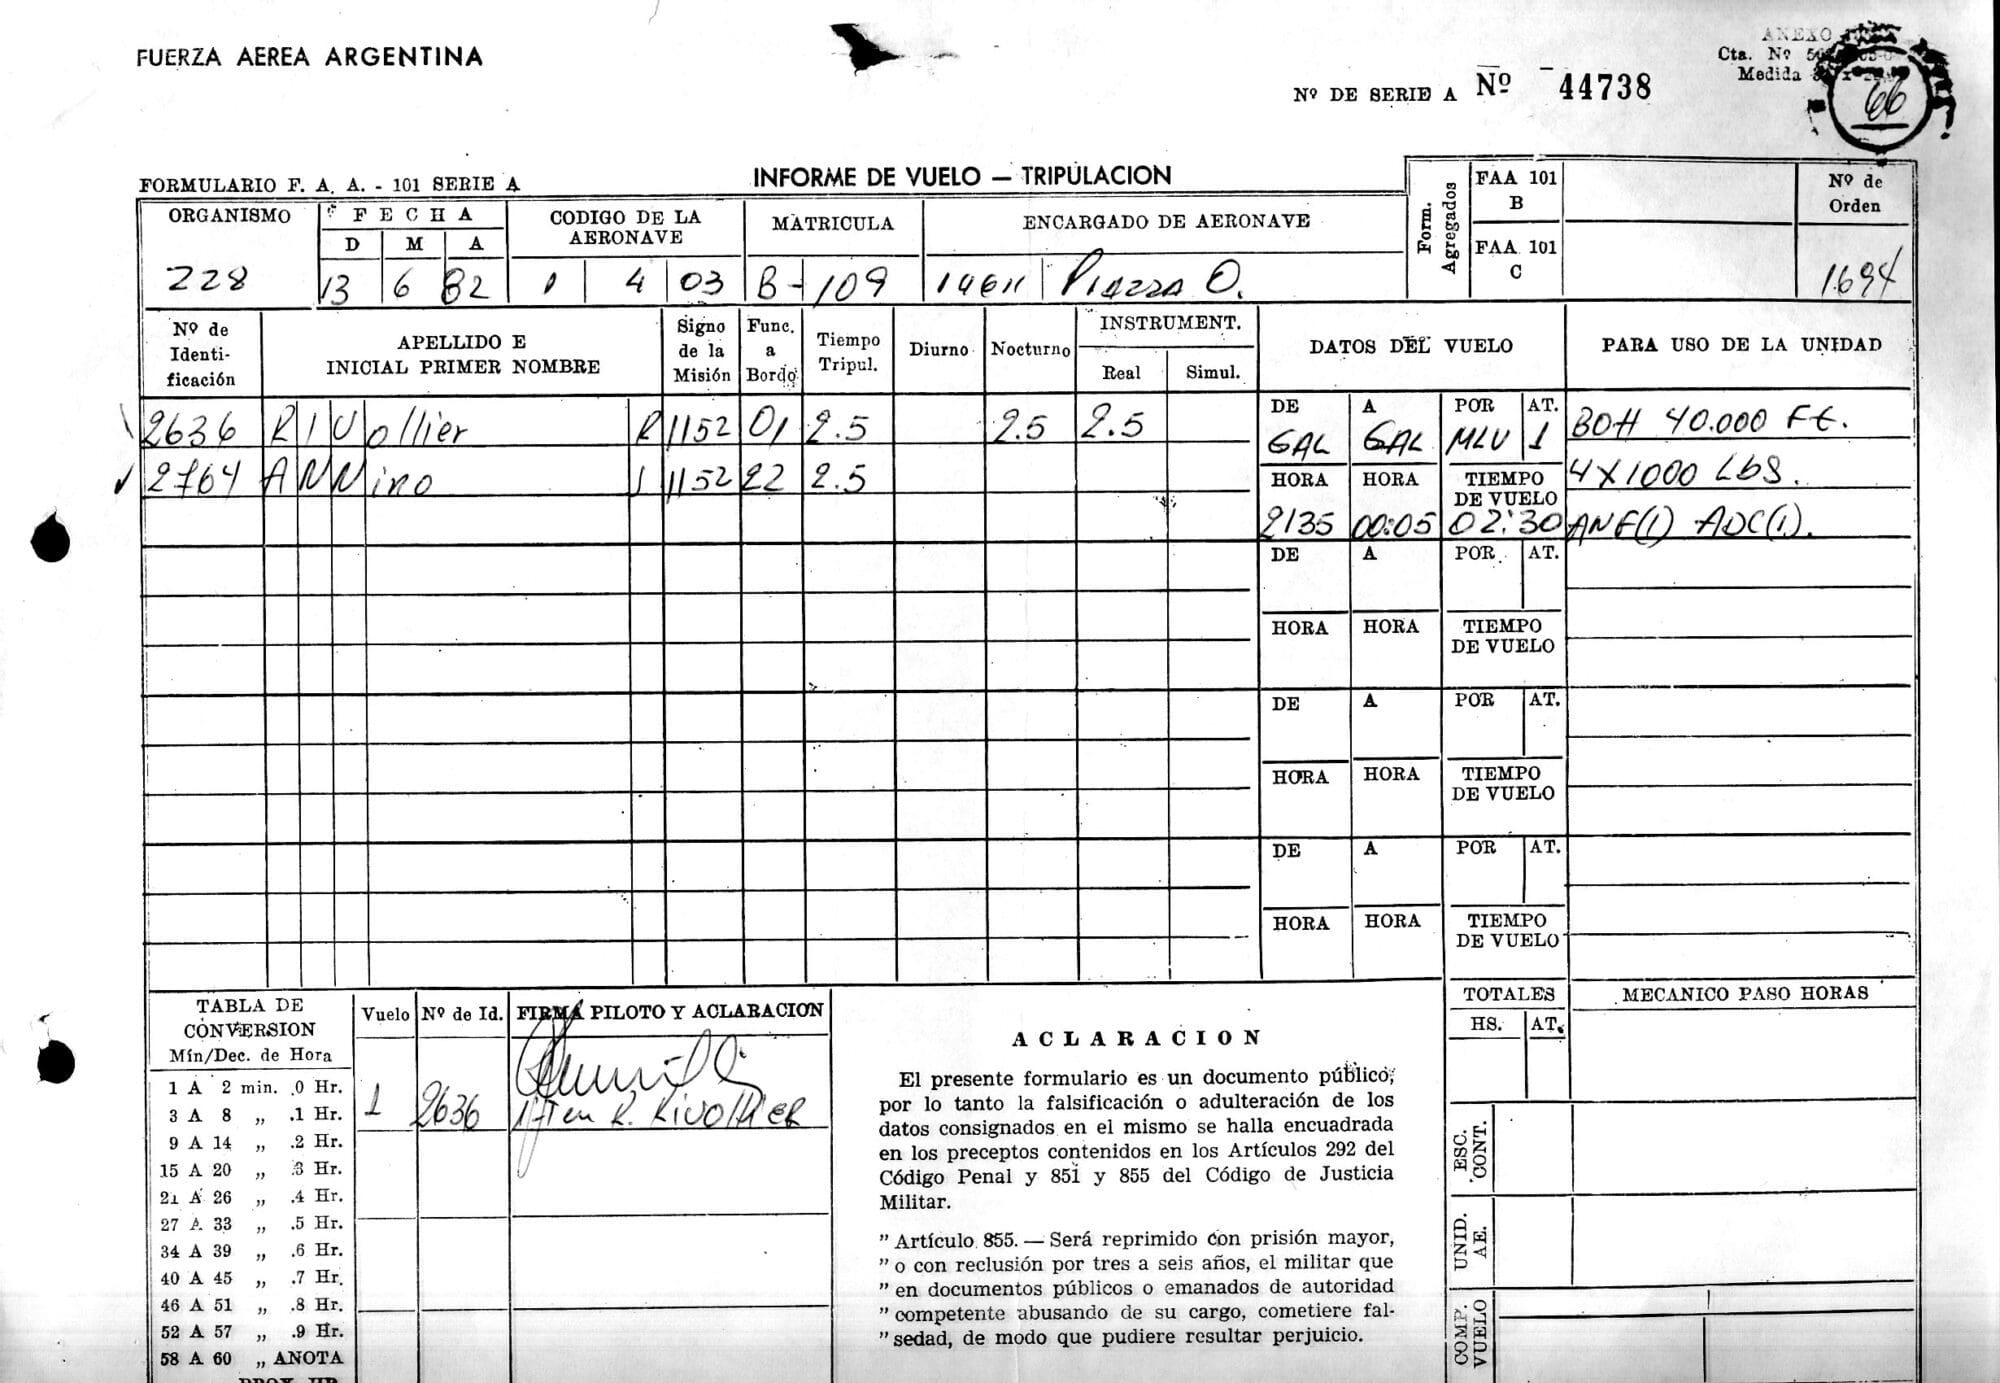 FUERZA AEREA ARGENTINA
ANEXO
Cta. Nº
Medida
Nº DE SERIE A Nº 44738
66
FORMULARIO F. A. A. - 101 SERIE A
INFORME DE VUELO — TRIPULACION
Form. Agregados
FAA 101 B
FAA 101 C
Nº de Orden
1694
ORGANISMO
FECHA
D M A
CODIGO DE LA AERONAVE
MATRICULA
ENCARGADO DE AERONAVE
228 13 6 82 1 4 03 B-109 Piazza O.
Nº de Identificación
APELLIDO E
INICIAL PRIMER NOMBRE
Signo de la Misión
Func. a Bordo
Tiempo Tripul.
Diurno
Nocturno
INSTRUMENT.
Real Simul.
DATOS DEL VUELO
PARA USO DE LA UNIDAD
2636 RIVollier R 1152 01 2.5 2.5 2.5
2764 ANNino J 1152 22 2.5
DE A POR AT.
GAL GAL MLV 1
HORA HORA TIEMPO DE VUELO
2135 00:05 02:30
BOH 40.000 Ft.
4X1000 Lbs.
ANE(1) ADC(1).
DE A POR AT.
HORA HORA TIEMPO DE VUELO
DE A POR AT.
HORA HORA TIEMPO DE VUELO
DE A POR AT.
HORA HORA TIEMPO DE VUELO
TABLA DE
CONVERSION
Mín/Dec. de Hora
1 A 2 min. .0 Hr.
3 A 8 „ .1 Hr.
9 A 14 „ .2 Hr.
15 A 20 „ .3 Hr.
21 A 26 „ .4 Hr.
27 A 33 „ .5 Hr.
34 A 39 „ .6 Hr.
40 A 45 „ .7 Hr.
46 A 51 „ .8 Hr.
52 A 57 „ .9 Hr.
58 A 60 „ ANOTA
Vuelo Nº de Id. FIRMA PILOTO Y ACLARACION
1 2636
R. RIVOLLIER
ACLARACION
El presente formulario es un documento público,
por lo tanto la falsificación o adulteración de los
datos consignados en el mismo se halla encuadrada
en los preceptos contenidos en los Artículos 292 del
Código Penal y 851 y 855 del Código de Justicia
Militar.
" Artículo 855. — Será reprimido con prisión mayor,
" o con reclusión por tres a seis años, el militar que
" en documentos públicos o emanados de autoridad
" competente abusando de su cargo, cometiere fal-
" sedad, de modo que pudiere resultar perjuicio.
TOTALES
HS. AT.
MECANICO PASO HORAS
ESC. CONT.
UNID. AE.
COMP. VUELO